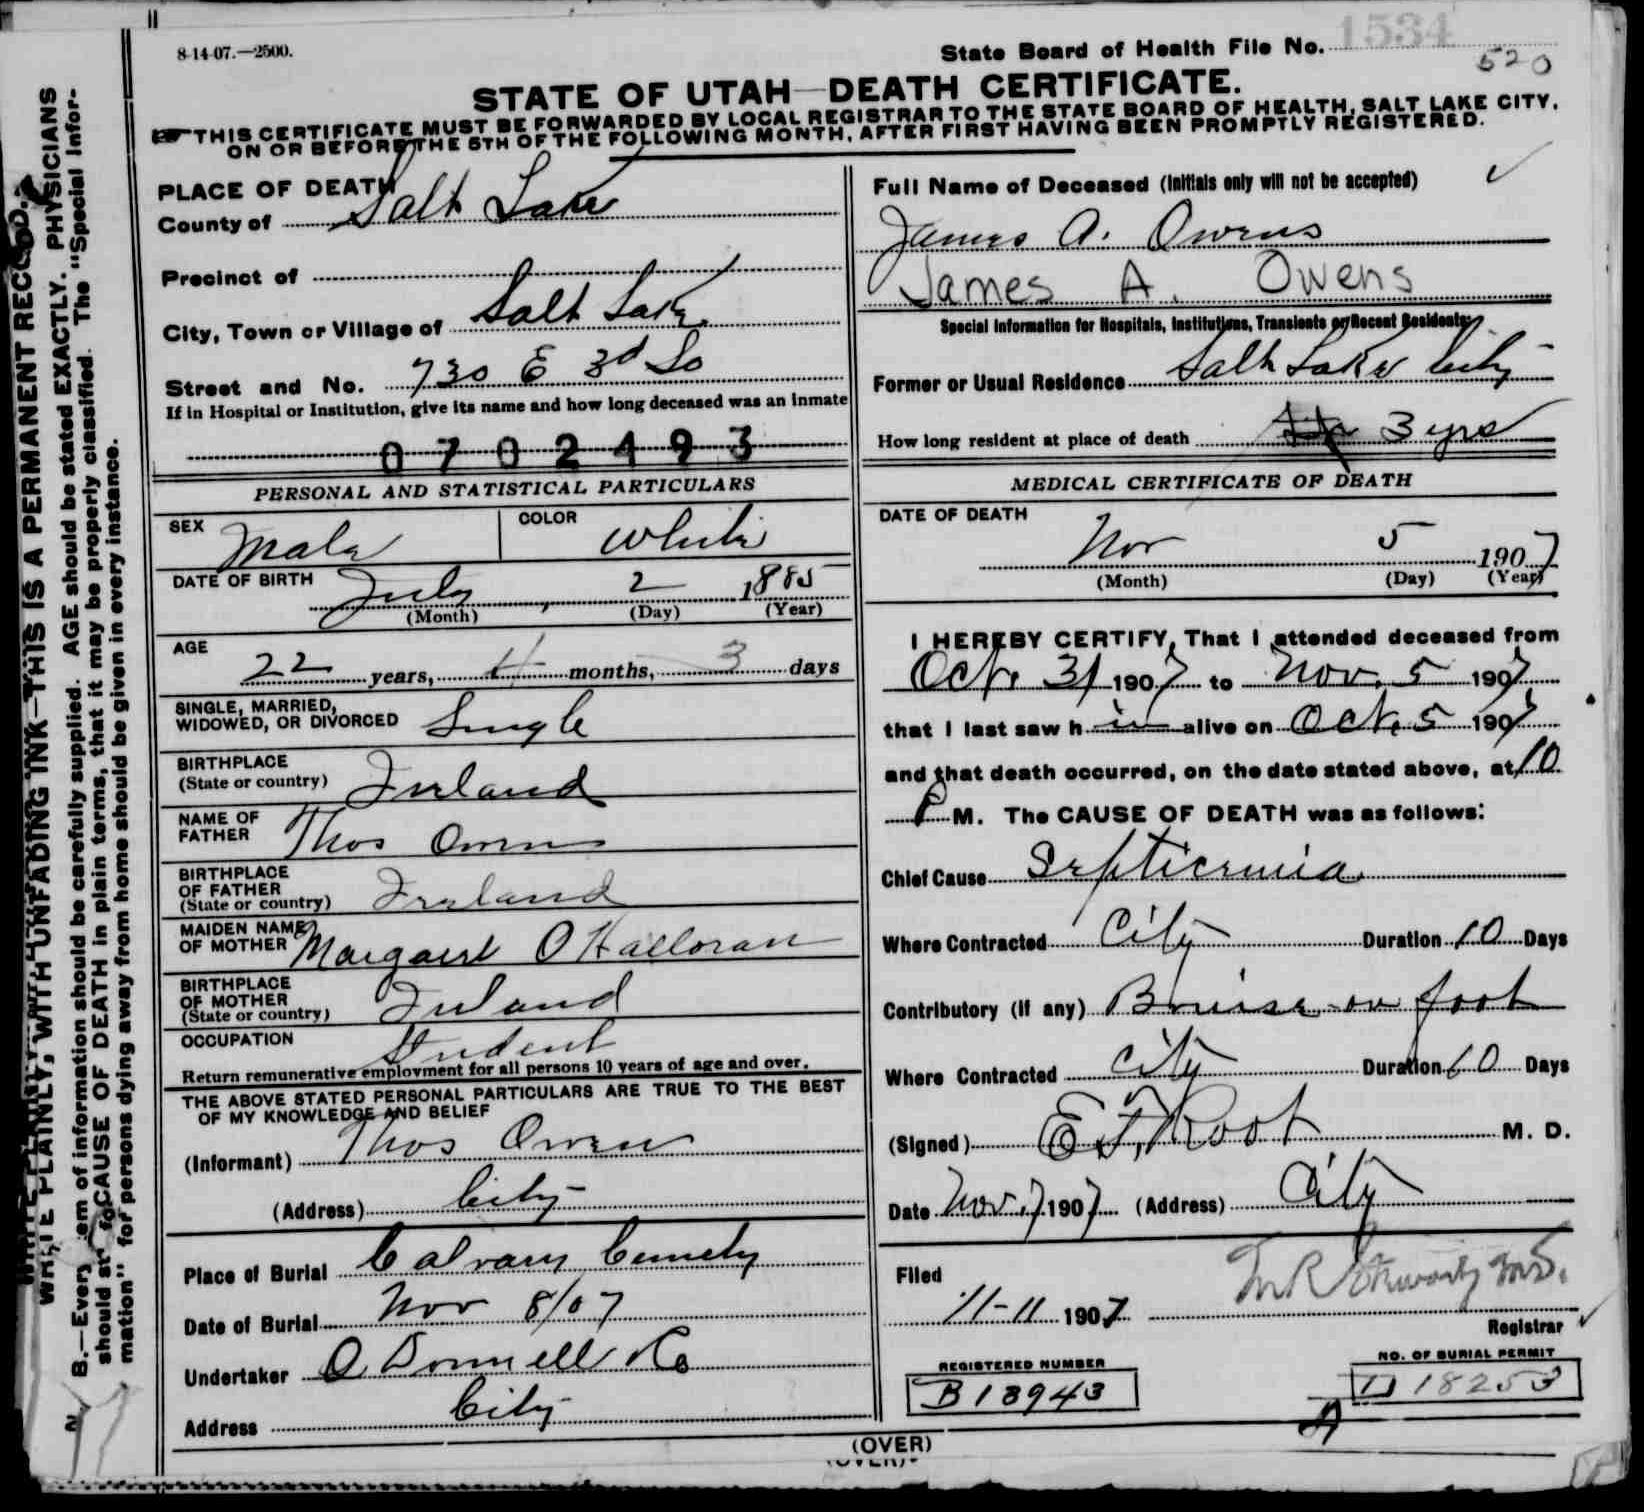 8-14-07.—2500.
State Board of Health File No. 1534
520
STATE OF UTAH—DEATH CERTIFICATE.
THIS CERTIFICATE MUST BE FORWARDED BY LOCAL REGISTRAR TO THE STATE BOARD OF HEALTH, SALT LAKE CITY,
ON OR BEFORE THE 5TH OF THE FOLLOWING MONTH, AFTER FIRST HAVING BEEN PROMPTLY REGISTERED.
PLACE OF DEATH
County of Salt Lake
Precinct of
City, Town or Village of Salt Lake
Street and No. 730 E 3d So
If in Hospital or Institution, give its name and how long deceased was an inmate
0702493
PERSONAL AND STATISTICAL PARTICULARS
SEX Male COLOR White
DATE OF BIRTH July 2 1885
(Month) (Day) (Year)
AGE
22 years, 4 months, 3 days
SINGLE, MARRIED,
WIDOWED, OR DIVORCED Single
BIRTHPLACE
(State or country) Ireland
NAME OF
FATHER Thos Owens
BIRTHPLACE
OF FATHER
(State or country) Ireland
MAIDEN NAME
OF MOTHER Margaret O Halloran
BIRTHPLACE
OF MOTHER
(State or country) Ireland
OCCUPATION Student
Return remunerative employment for all persons 10 years of age and over.
THE ABOVE STATED PERSONAL PARTICULARS ARE TRUE TO THE BEST
OF MY KNOWLEDGE AND BELIEF
(Informant) Thos Owen
(Address) City
Place of Burial Calvary Cemety
Date of Burial Nov 8/07
Undertaker O Donnell & Co
Address City
Full Name of Deceased (Initials only will not be accepted)
James A. Owens
James A. Owens
Special Information for Hospitals, Institutions, Transients or Recent Residents.
Former or Usual Residence Salt Lake City
How long resident at place of death 3 yrs
MEDICAL CERTIFICATE OF DEATH
DATE OF DEATH
Nov 5 1907
(Month) (Day) (Year)
I HEREBY CERTIFY, That I attended deceased from
Oct. 31 1907 to Nov. 5 1907
that I last saw h im alive on Oct. 5 1907
and that death occurred, on the date stated above, at 10
P M. The CAUSE OF DEATH was as follows:
Chief Cause Septicemia
Where Contracted City Duration 10 Days
Contributory (if any) Bruise on foot
Where Contracted City Duration 60 Days
(Signed) E. F. Root M. D.
Date Nov. 7 1907 (Address) City
Filed
11-11 1907
Registrar
REGISTERED NUMBER
B13943
NO. OF BURIAL PERMIT
D 18253
(OVER)
(OVER)
WRITE PLAINLY, WITH UNFADING INK—THIS IS A PERMANENT RECORD.
N. B.—Every item of information should be carefully supplied. AGE should be stated EXACTLY. PHYSICIANS
should state CAUSE OF DEATH in plain terms, that it may be properly classified. The "Special Infor-
mation" for persons dying away from home should be given in every instance.